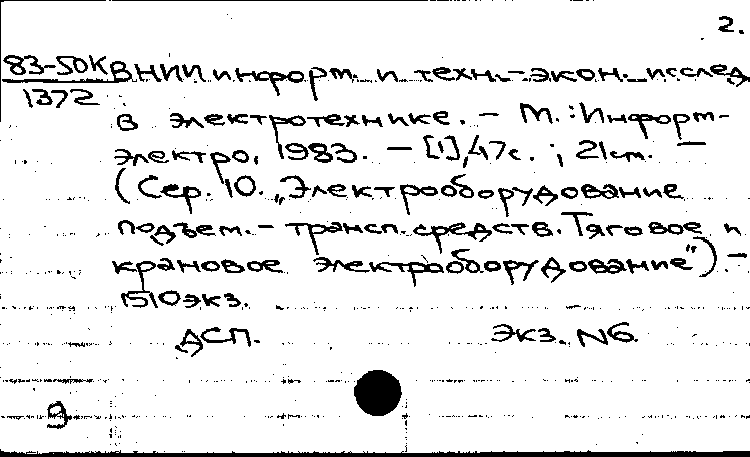 2.
83-50К ВНИИ информ. и техн.-экон. исслед
1372
в электротехнике. - М. : Информ-
электро, 1983. - [1], 47с. ; 21см. -
(Сер. 10. „Электрооборудование
подъем.-трансп. средств. Тяговое и
крановое электрооборудование") -
1510экз.
ДСП. Экз. N6.
9